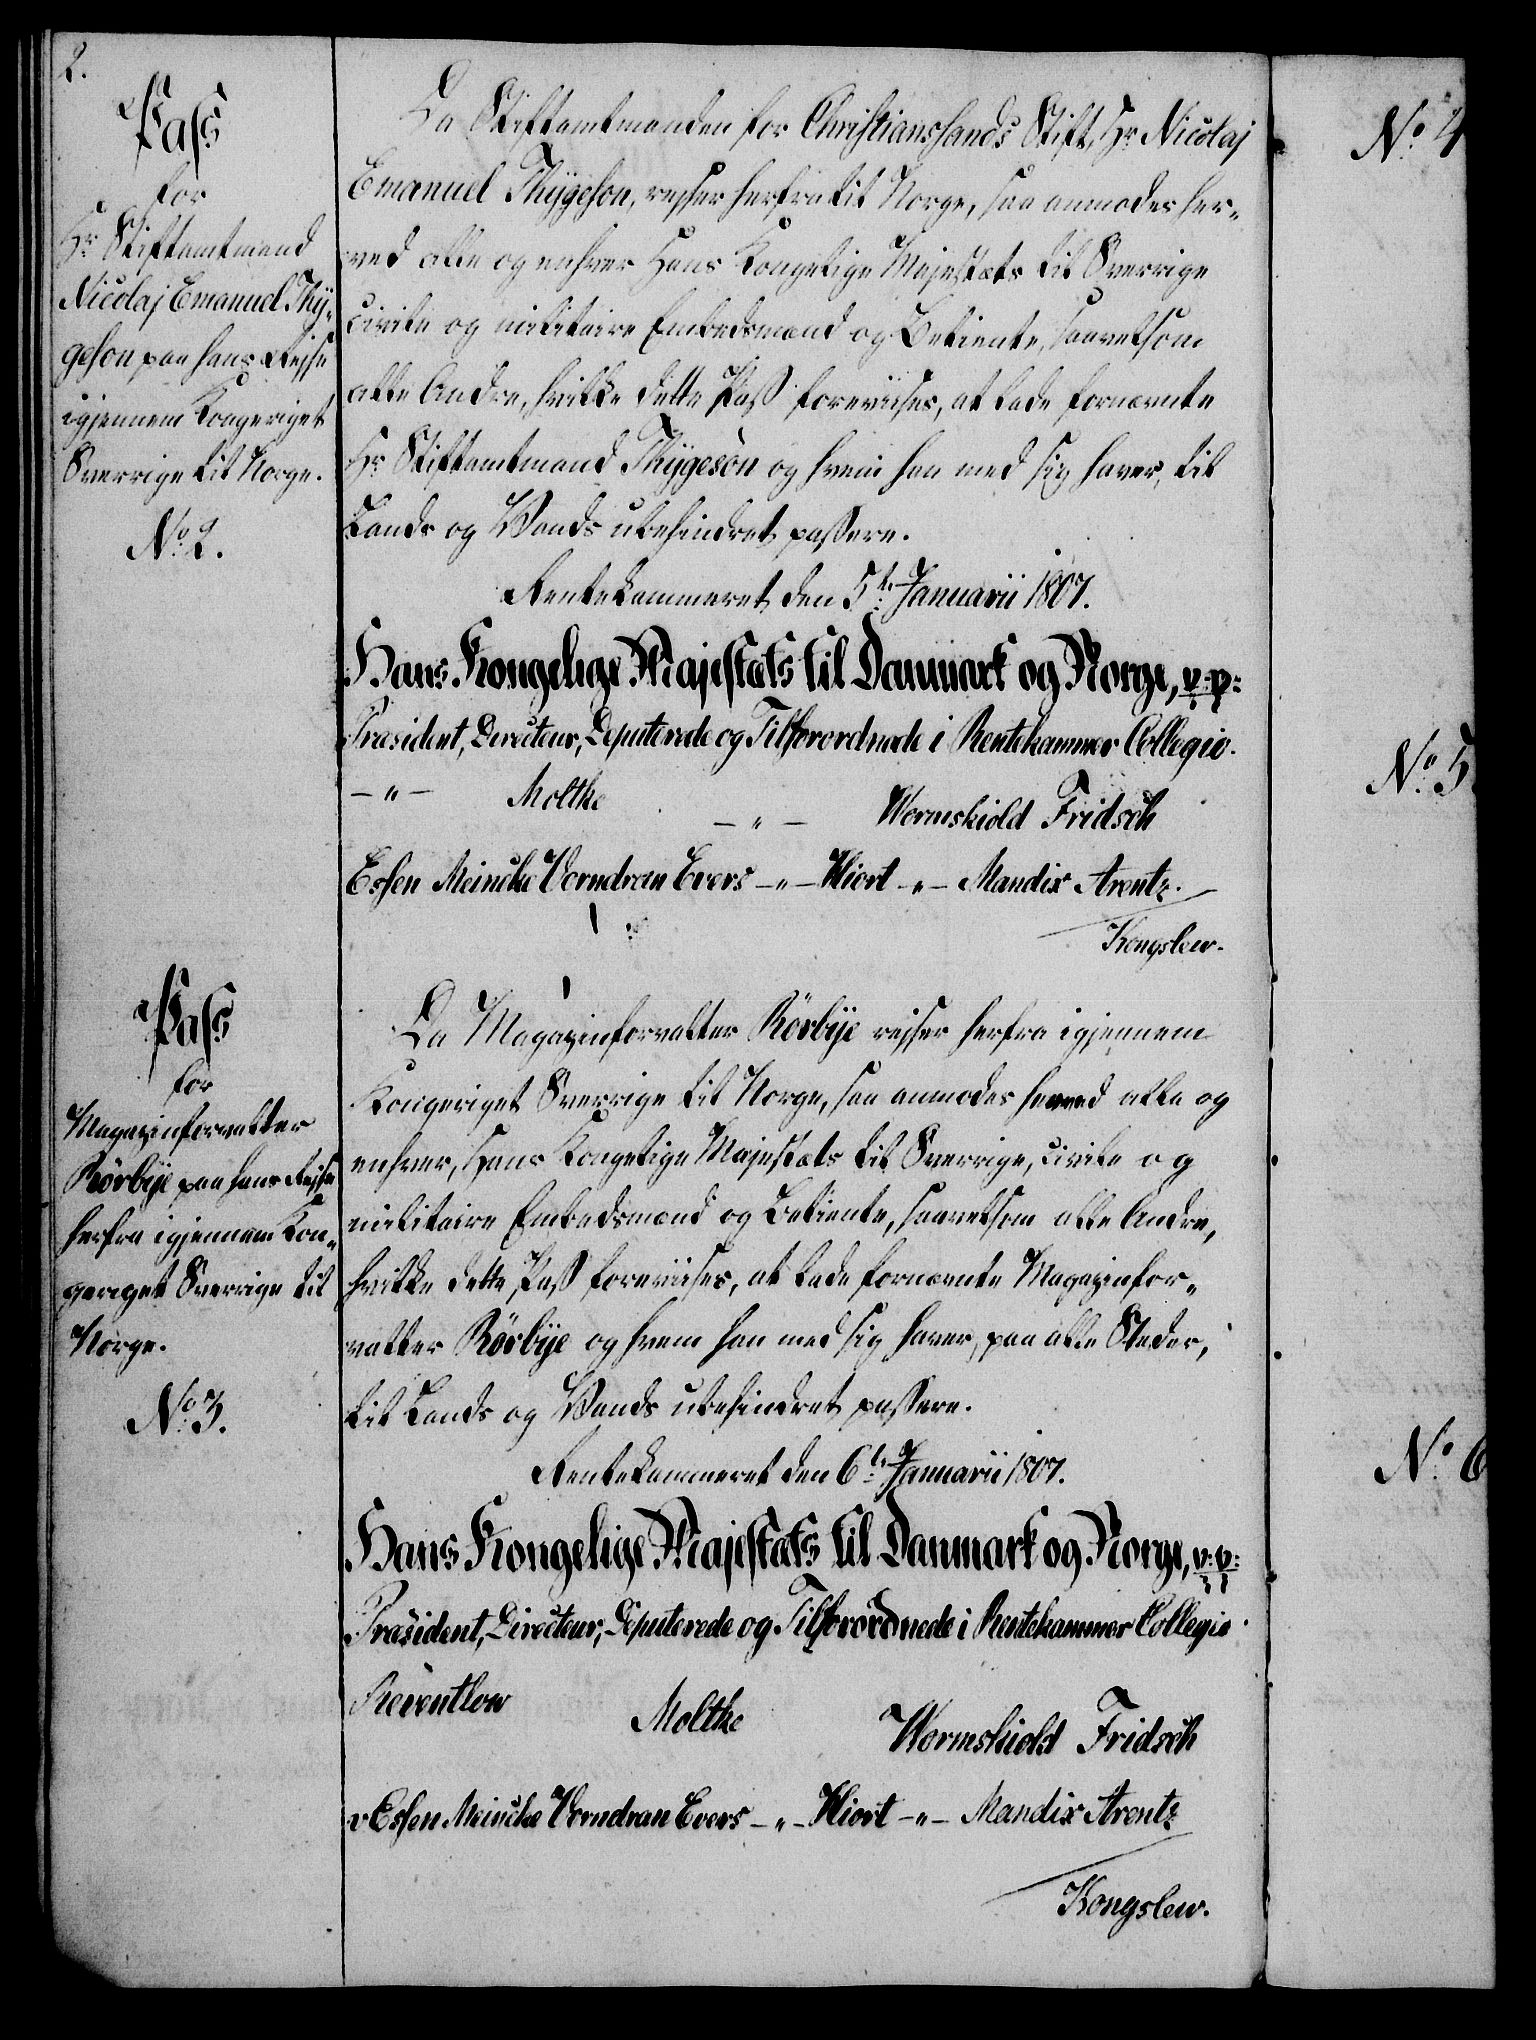 2.
Pass
for
Hr Stiftamtmand
Nicolaj Emanuel Thÿ-
geson paa hans Rejse
igjennem Kongeriget
Sverrige til Norge.
No 2.
Da Stiftamtmanden for Christianssands Stift, Hr Nicolaj
Emanuel Thÿgeson, rejser herfra til Norge, saa anmodes her-
ved alle og enhver Hans Kongelige Majestæts til Sverrige
civile og militaire Embedsmænd og Betiente, saavelsom
alle Andre, hvilke dette Pass foreviises, at lade fornævnte
Hr Stiftamtmand Thÿgeson og hvem han med sig haver, til
Lands og Vands ubehindret passere.
Rentekammeret den 5te Januarii 1807.
Hans Kongelige Majestæts til Danmark og Norge, p: p:
Præsident, Directeur, Deputerede og Tilforordnede i Rentekammer Collegio.
- " - Molthe - " - Wormskiold Fridsch
Essen Meincke Vorndran Evers - " - Hiort - " - Mandix Arentz.
Kongslew.
Pass
for
Magazinforvalter
Rörbÿe paa hans Rejse
herfra igjennem Kon-
geriget Sverrige til
Norge.
No 3.
Da Magazinforvalter Rörbÿe rejser herfra igjennem
Kongeriget Sverrige til Norge, saa anmodes herved alle og
enhver, Hans Kongelige Majestæts til Sverrige, civile og
militaire Embedsmænd og Betiente, saavelsom alle Andre,
hvilke dette Pass foreviises, at lade fornævnte Magazinfor-
valter Rörbÿe og hvem han med sig haver, paa alle Steder,
til Lands og Vands ubehindret passere.
Rentekammeret den 6te Januarii 1807.
Hans Kongelige Majestæts til Danmark og Norge, p: p:
Præsident, Directeur, Deputerede og Tilforordnede i Rentekammer Collegio.
Reventlow Molthe Wormskiold Fridsch
v Essen Meincke Vorndran Evers - " - Hiort - " - Mandix Arentz
Kongslew.
No 4
No 5
No 6